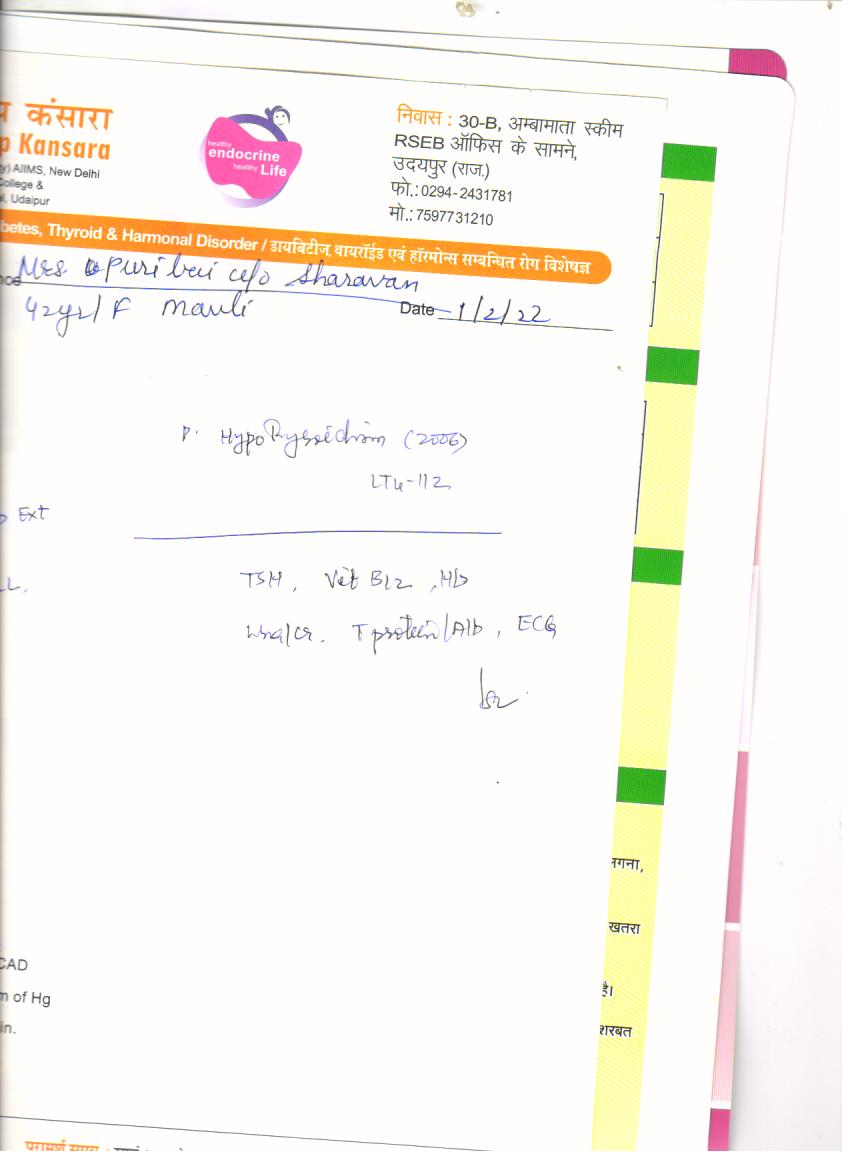 कंसारा
p Kansara
y) AIIMS, New Delhi
College &
l, Udaipur
healthy
endocrine
healthy Life
निवास : 30-B, अम्बामाता स्कीम
RSEB ऑफिस के सामने,
उदयपुर (राज.)
फो.: 0294-2431781
मो.: 7597731210
betes, Thyroid & Harmonal Disorder / डायबिटीज, थायरॉईड एवं हॉरमोन्स सम्बन्धित रोग विशेषज्ञ
Mrs. Puribai w/o Sharavan
42yr/F Mavli
Date 1/2/22
Hypothyroidism (2006)
LT4-112
Ext
TSH, Vit B12, Hb
Urea/cr. T protein/Alb, ECG
लगना,
खतरा
है।
शरबत
CAD
m of Hg
in.
परामर्श समय :